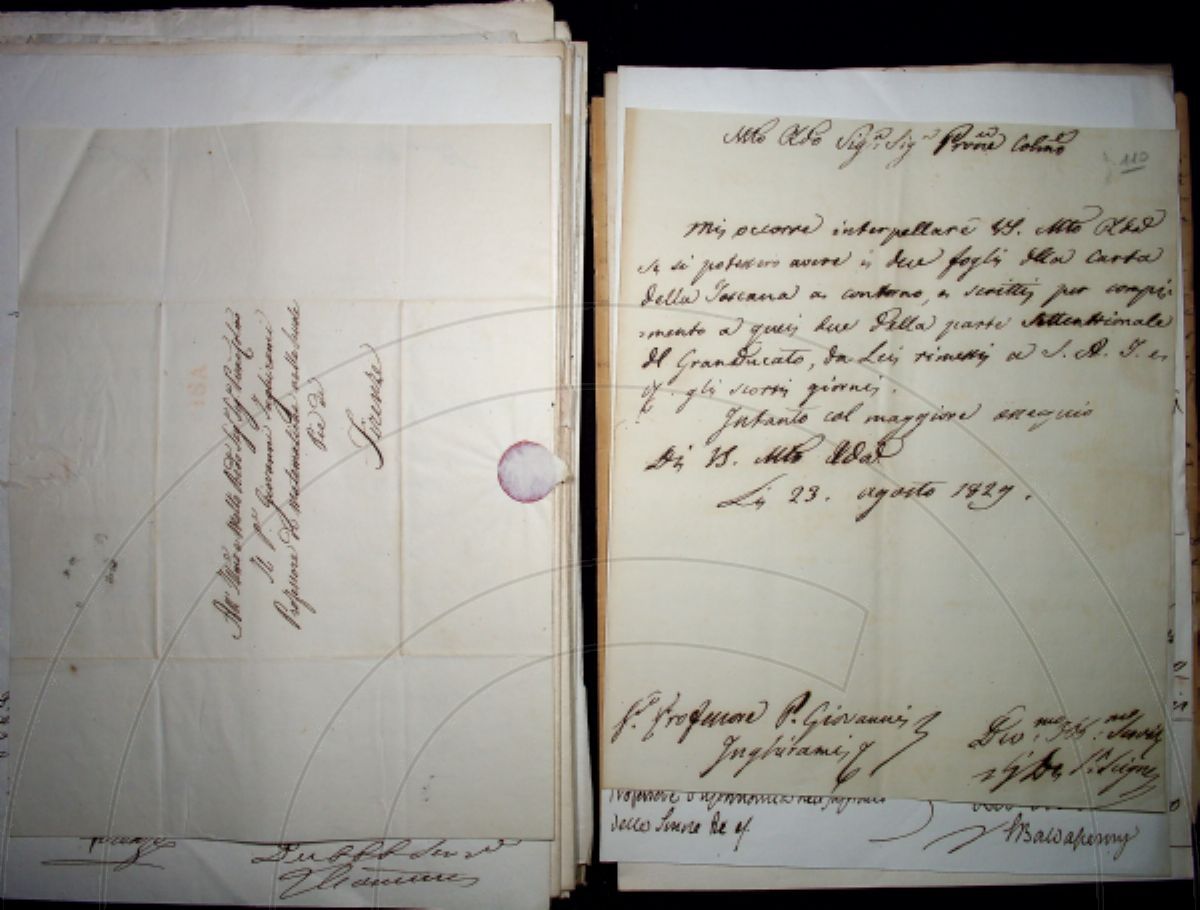 All' Illmo e Molto Rdo Sigr Sigr
Il P. Giovanni Inghirami
Professore di Matematiche nelle Scuole
Pie di
Firenze
ISA
Firenze
Mto Rdo Sigr Sigr Prone Colmo
110
Mi occorre interpellare VS. Mto Rda
se si potessero avere i due fogli della Carta
della Toscana a contorno, e scritti per compi-
mento a quei due della parte Settentrionale
del GranDucato, da Lei rimessi a S. A. I. e
R. gli scorsi giorni
Intanto col maggiore ossequio
Di VS. Mto Rda
Li 23. agosto 1829.
Sr. Professore P. Giovanni
Inghirami
Devmo Servit
Professore d'Astronomia
delle Scuole Pie